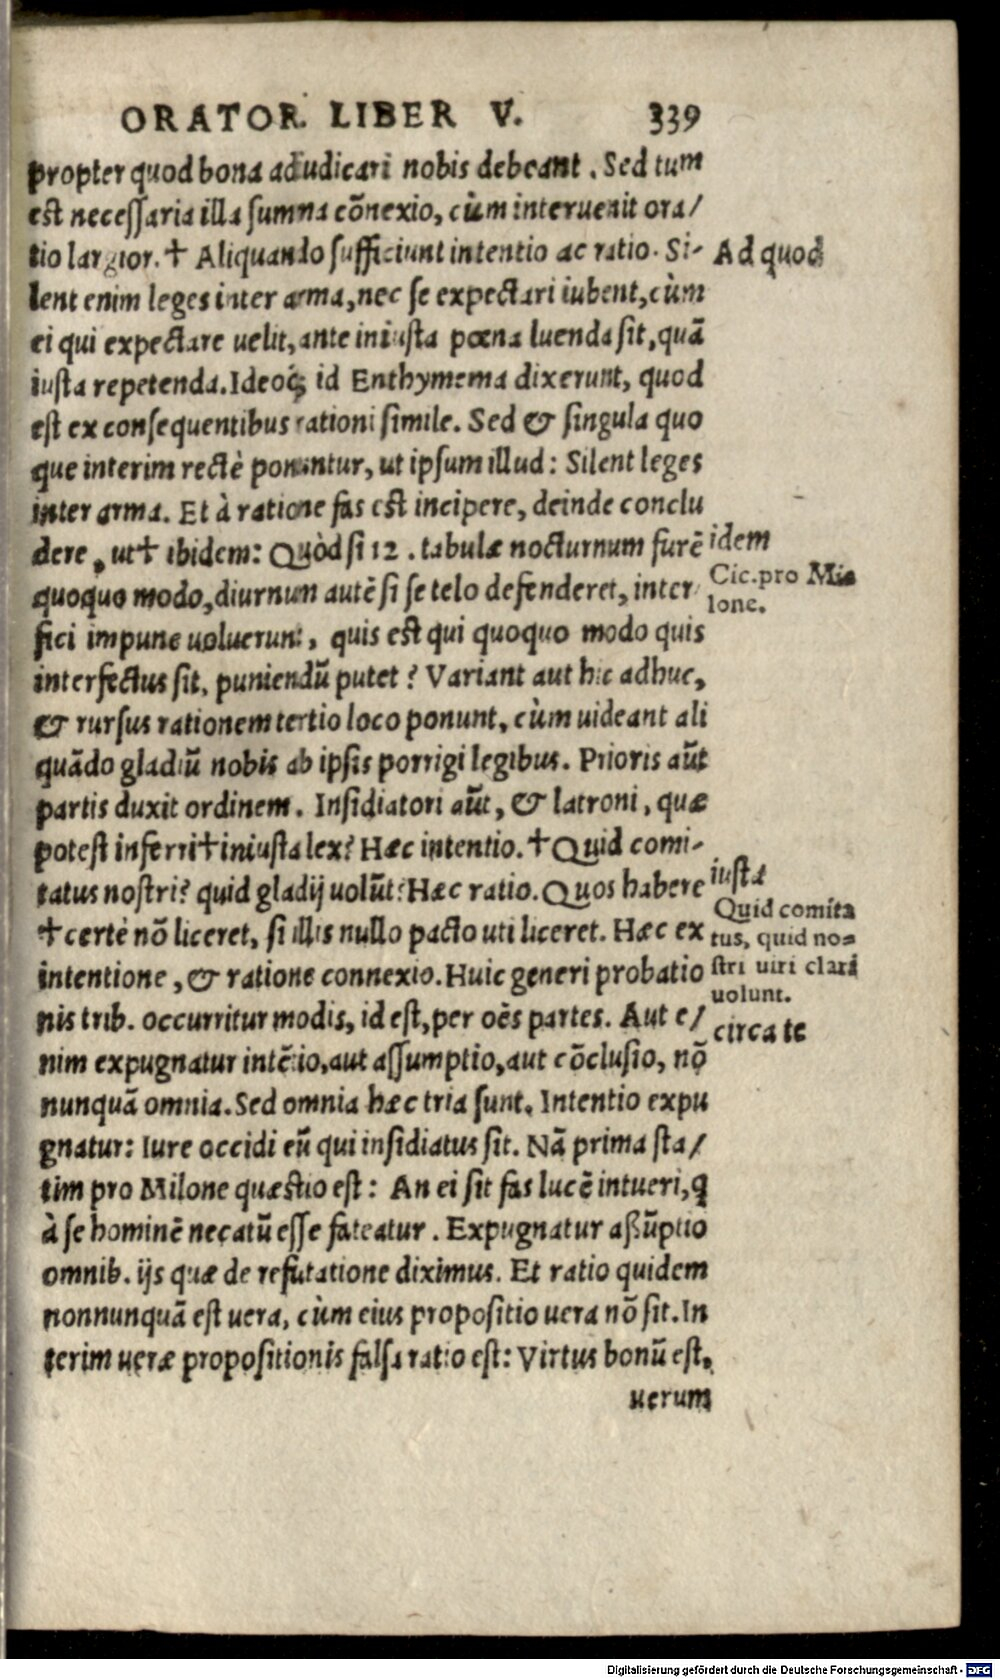 ORATOR. LIBER V. 339
propter quod bona adiudicari nobis debeant. Sed tum
est necessaria illa summa cõnexio, cùm interuenit ora/
tio largior. † Aliquando sufficiunt intentio ac ratio. Si-
Ad quod
lent enim leges inter arma, nec se expectari iubent, cùm
ei qui expectare uelit, ante iniusta pœna luenda sit, quã
iusta repetenda. Ideoq; id Enthymema dixerunt, quod
est ex consequentibus rationi simile. Sed & singula quo
que interim rectè ponuntur, ut ipsum illud: Silent leges
inter arma. Et à ratione fas est incipere, deinde conclu
dere, ut † ibidem: Quòd si 12. tabulæ nocturnum furẽ
idem
Cic. pro Mi=
lone.
quoquo modo, diurnum autẽ si se telo defenderet, inter
fici impune uoluerunt, quis est qui quoquo modo quis
interfectus sit, puniendũ putet? Variant aut hic adhuc,
& rursus rationem tertio loco ponunt, cùm uideant ali
quãdo gladiũ nobis ab ipsis porrigi legibus. Prioris aũt
partis duxit ordinem. Insidiatori aũt, & latroni, quæ
potest inferri † iniusta lex? Hæc intentio. † Quid comi-
iusta
tatus nostri? quid gladij uolũt? Hæc ratio. Quos habere
Quid comita
tus, quid no=
stri uiri clari
uolunt.
† certè nõ liceret, si illis nullo pacto uti liceret. Hæc ex
intentione, & ratione connexio. Huic generi probatio
nis trib. occurritur modis, id est, per oẽs partes. Aut e/
circa te
nim expugnatur intẽtio, aut assumptio, aut cõclusio, nõ
nunquã omnia. Sed omnia hæc tria sunt. Intentio expu
gnatur: Iure occidi eũ qui insidiatus sit. Nã prima sta/
tim pro Milone quæstio est: An ei sit fas lucẽ intueri, q
à se hominẽ necatũ esse fateatur. Expugnatur aßũptio
omnib. ijs quæ de refutatione diximus. Et ratio quidem
nonnunquã est uera, cùm eius propositio uera nõ sit. In
terim ueræ propositionis falsa ratio est: Virtus bonũ est,
uerum
Digitalisierung gefördert durch die Deutsche Forschungsgemeinschaft - DFG